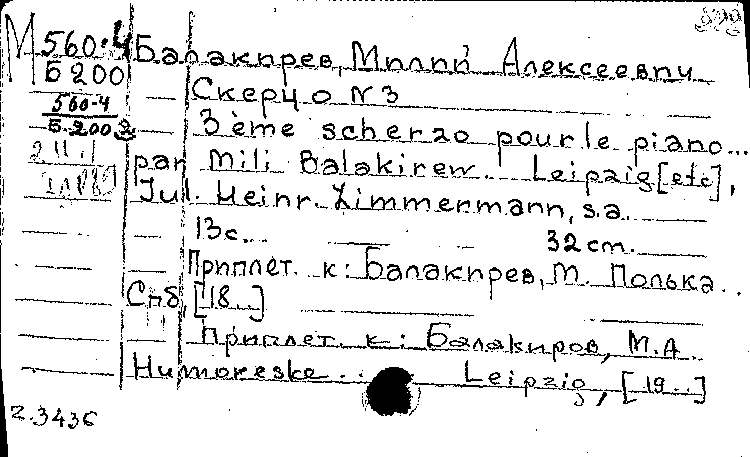 М 560-4 Балакирев, Милий Алексеевич
Б 200 Скерцо N 3
560-4
Б-200а 3ème scherzo pour le piano...
par Mili Balakirew. Leipzig [etc],
Jul. Heinr. Zimmermann, s.a.
13с. 32 cm.
Приплет. к: Балакирев, М. Полька..
Спб, [18..]
Приплет. к: Балакиров, М.А.
Humoreske... Leipzig, [19..]
2.3436